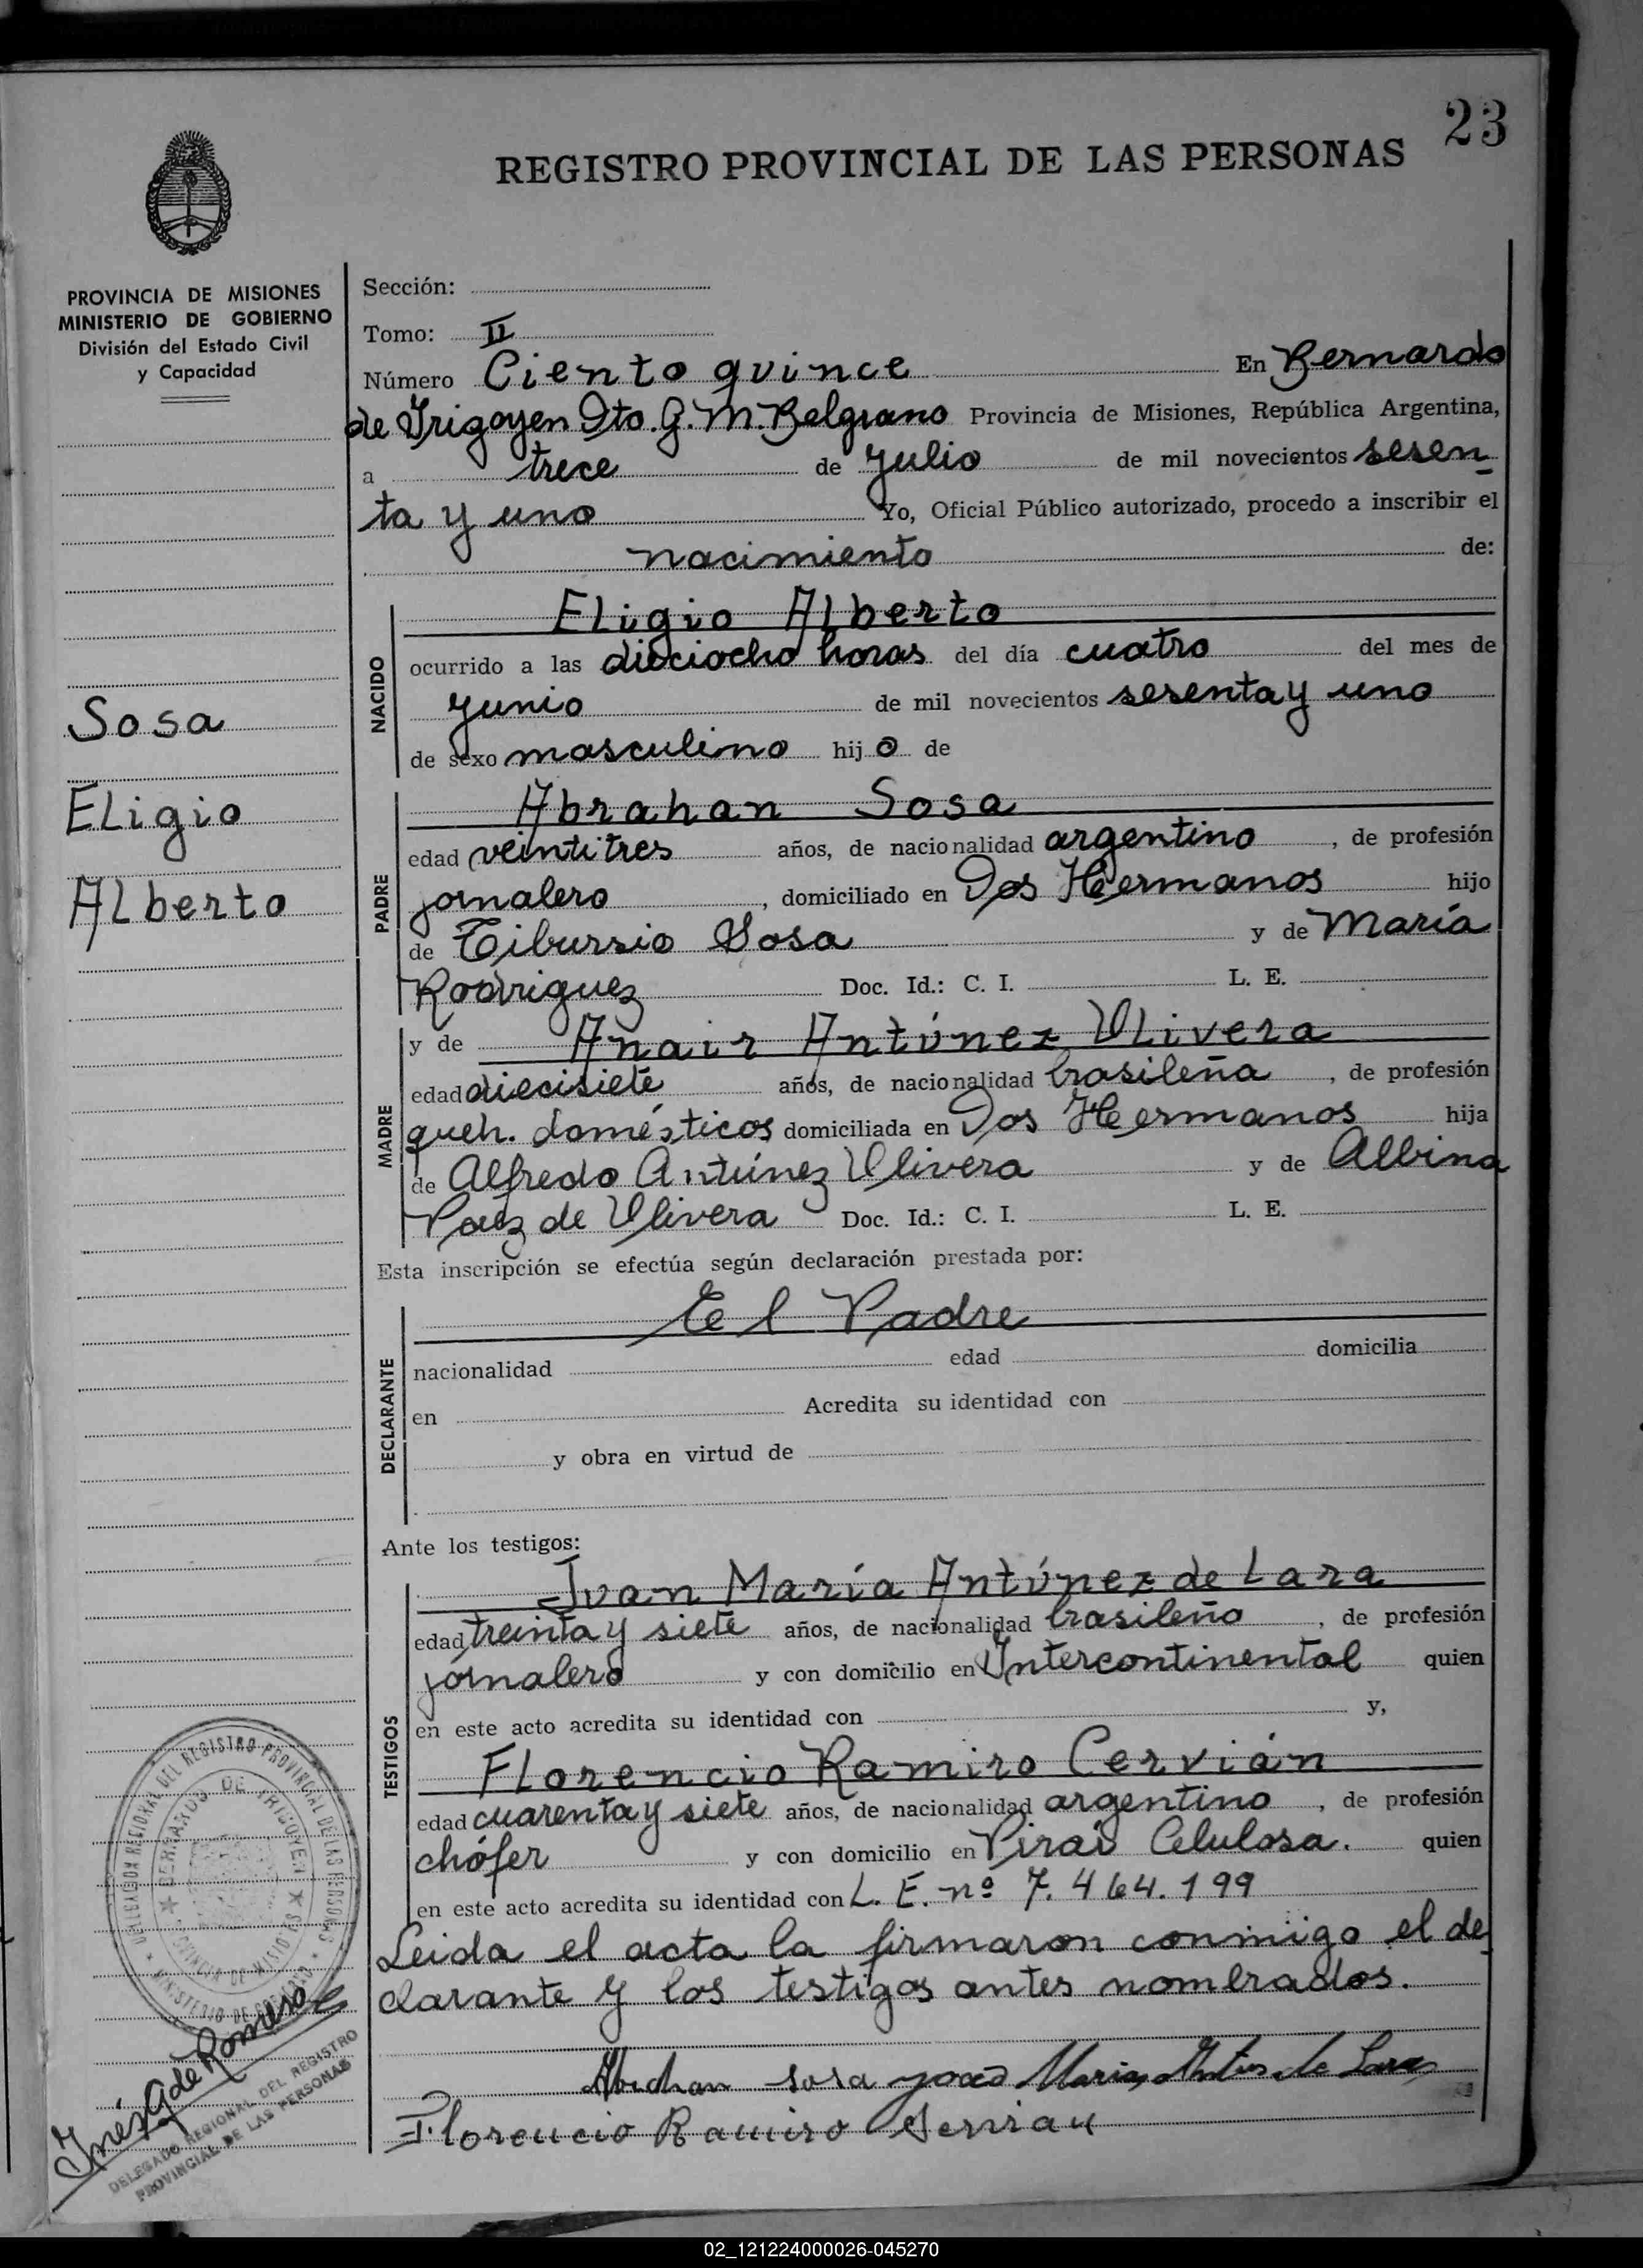 23
REGISTRO PROVINCIAL DE LAS PERSONAS
PROVINCIA DE MISIONES
MINISTERIO DE GOBIERNO
División del Estado Civil
y Capacidad
Sosa
Eligio
Alberto
Sección:
Tomo: II
Número Ciento quince En Bernardo
de Yrigoyen Dto. G. M. Belgrano Provincia de Misiones, República Argentina,
a trece de Julio de mil novecientos sesen-
ta y uno Yo, Oficial Público autorizado, procedo a inscribir el
nacimiento de:
NACIDO
Eligio Alberto
ocurrido a las dieciocho horas del día cuatro del mes de
Junio de mil novecientos sesenta y uno
de sexo masculino hijo de
PADRE
Abrahan Sosa
edad veintitres años, de nacionalidad argentino, de profesión
jornalero, domiciliado en Dos Hermanos hijo
de Tibursio Sosa y de María
Rodriguez Doc. Id.: C. I. L. E.
MADRE
y de Anair Antúnez Ulivera
edad diecisiete años, de nacionalidad brasileña, de profesión
queh. domésticos domiciliada en Dos Hermanos hija
de Alfredo Antúnez Ulivera y de Albina
Paez de Ulivera Doc. Id.: C. I. L. E.
Esta inscripción se efectúa según declaración prestada por:
DECLARANTE
El Padre
nacionalidad edad domicilia
en Acredita su identidad con
y obra en virtud de
Ante los testigos:
TESTIGOS
Juan María Antúnez de Lara
edad treinta y siete años, de nacionalidad brasileño, de profesión
jornalero y con domicilio en Intercontinental quien
en este acto acredita su identidad con y,
Florencio Ramiro Cervián
edad cuarenta y siete años, de nacionalidad argentino, de profesión
chófer y con domicilio en Piraí Celulosa. quien
en este acto acredita su identidad con L. E. nº 7.464.199
Leida el acta la firmaron conmigo el de
clarante y los testigos antes nombrados.
Abrahan sosa João Maria de Lara
Florencio Ramiro Servian
DELEGACION REGIONAL DEL REGISTRO PROVINCIAL DE LAS PERSONAS
MINISTERIO DE GOBIERNO
BERNARDO DE IRIGOYEN
PROVINCIA DE MISIONES
Inés G de Romero
DELEGADO REGIONAL DEL REGISTRO
PROVINCIAL DE LAS PERSONAS
02_121224000026-045270